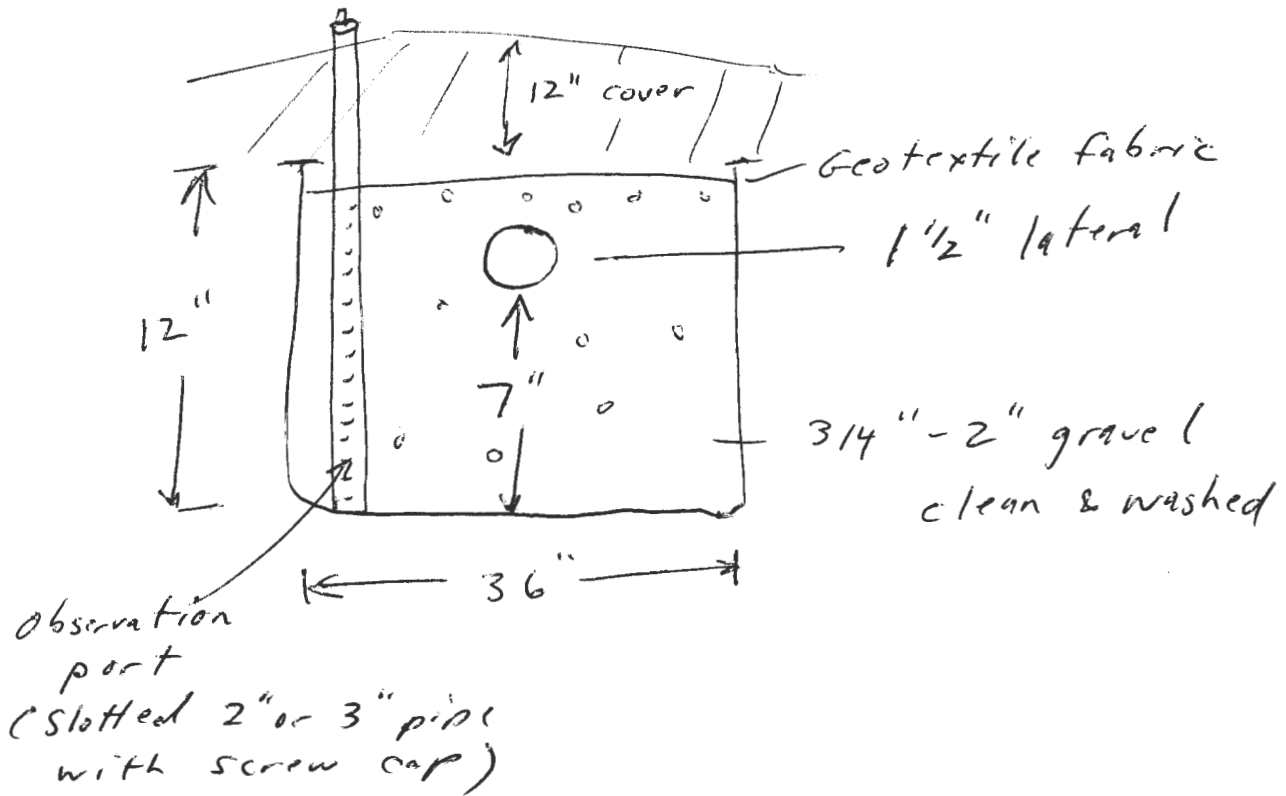 12" cover
Geotextile fabric
1 1/2" lateral
12"
7"
3/4" - 2" gravel
clean & washed
36"
Observation
port
(Slotted 2" or 3" pipe
with screw cap)